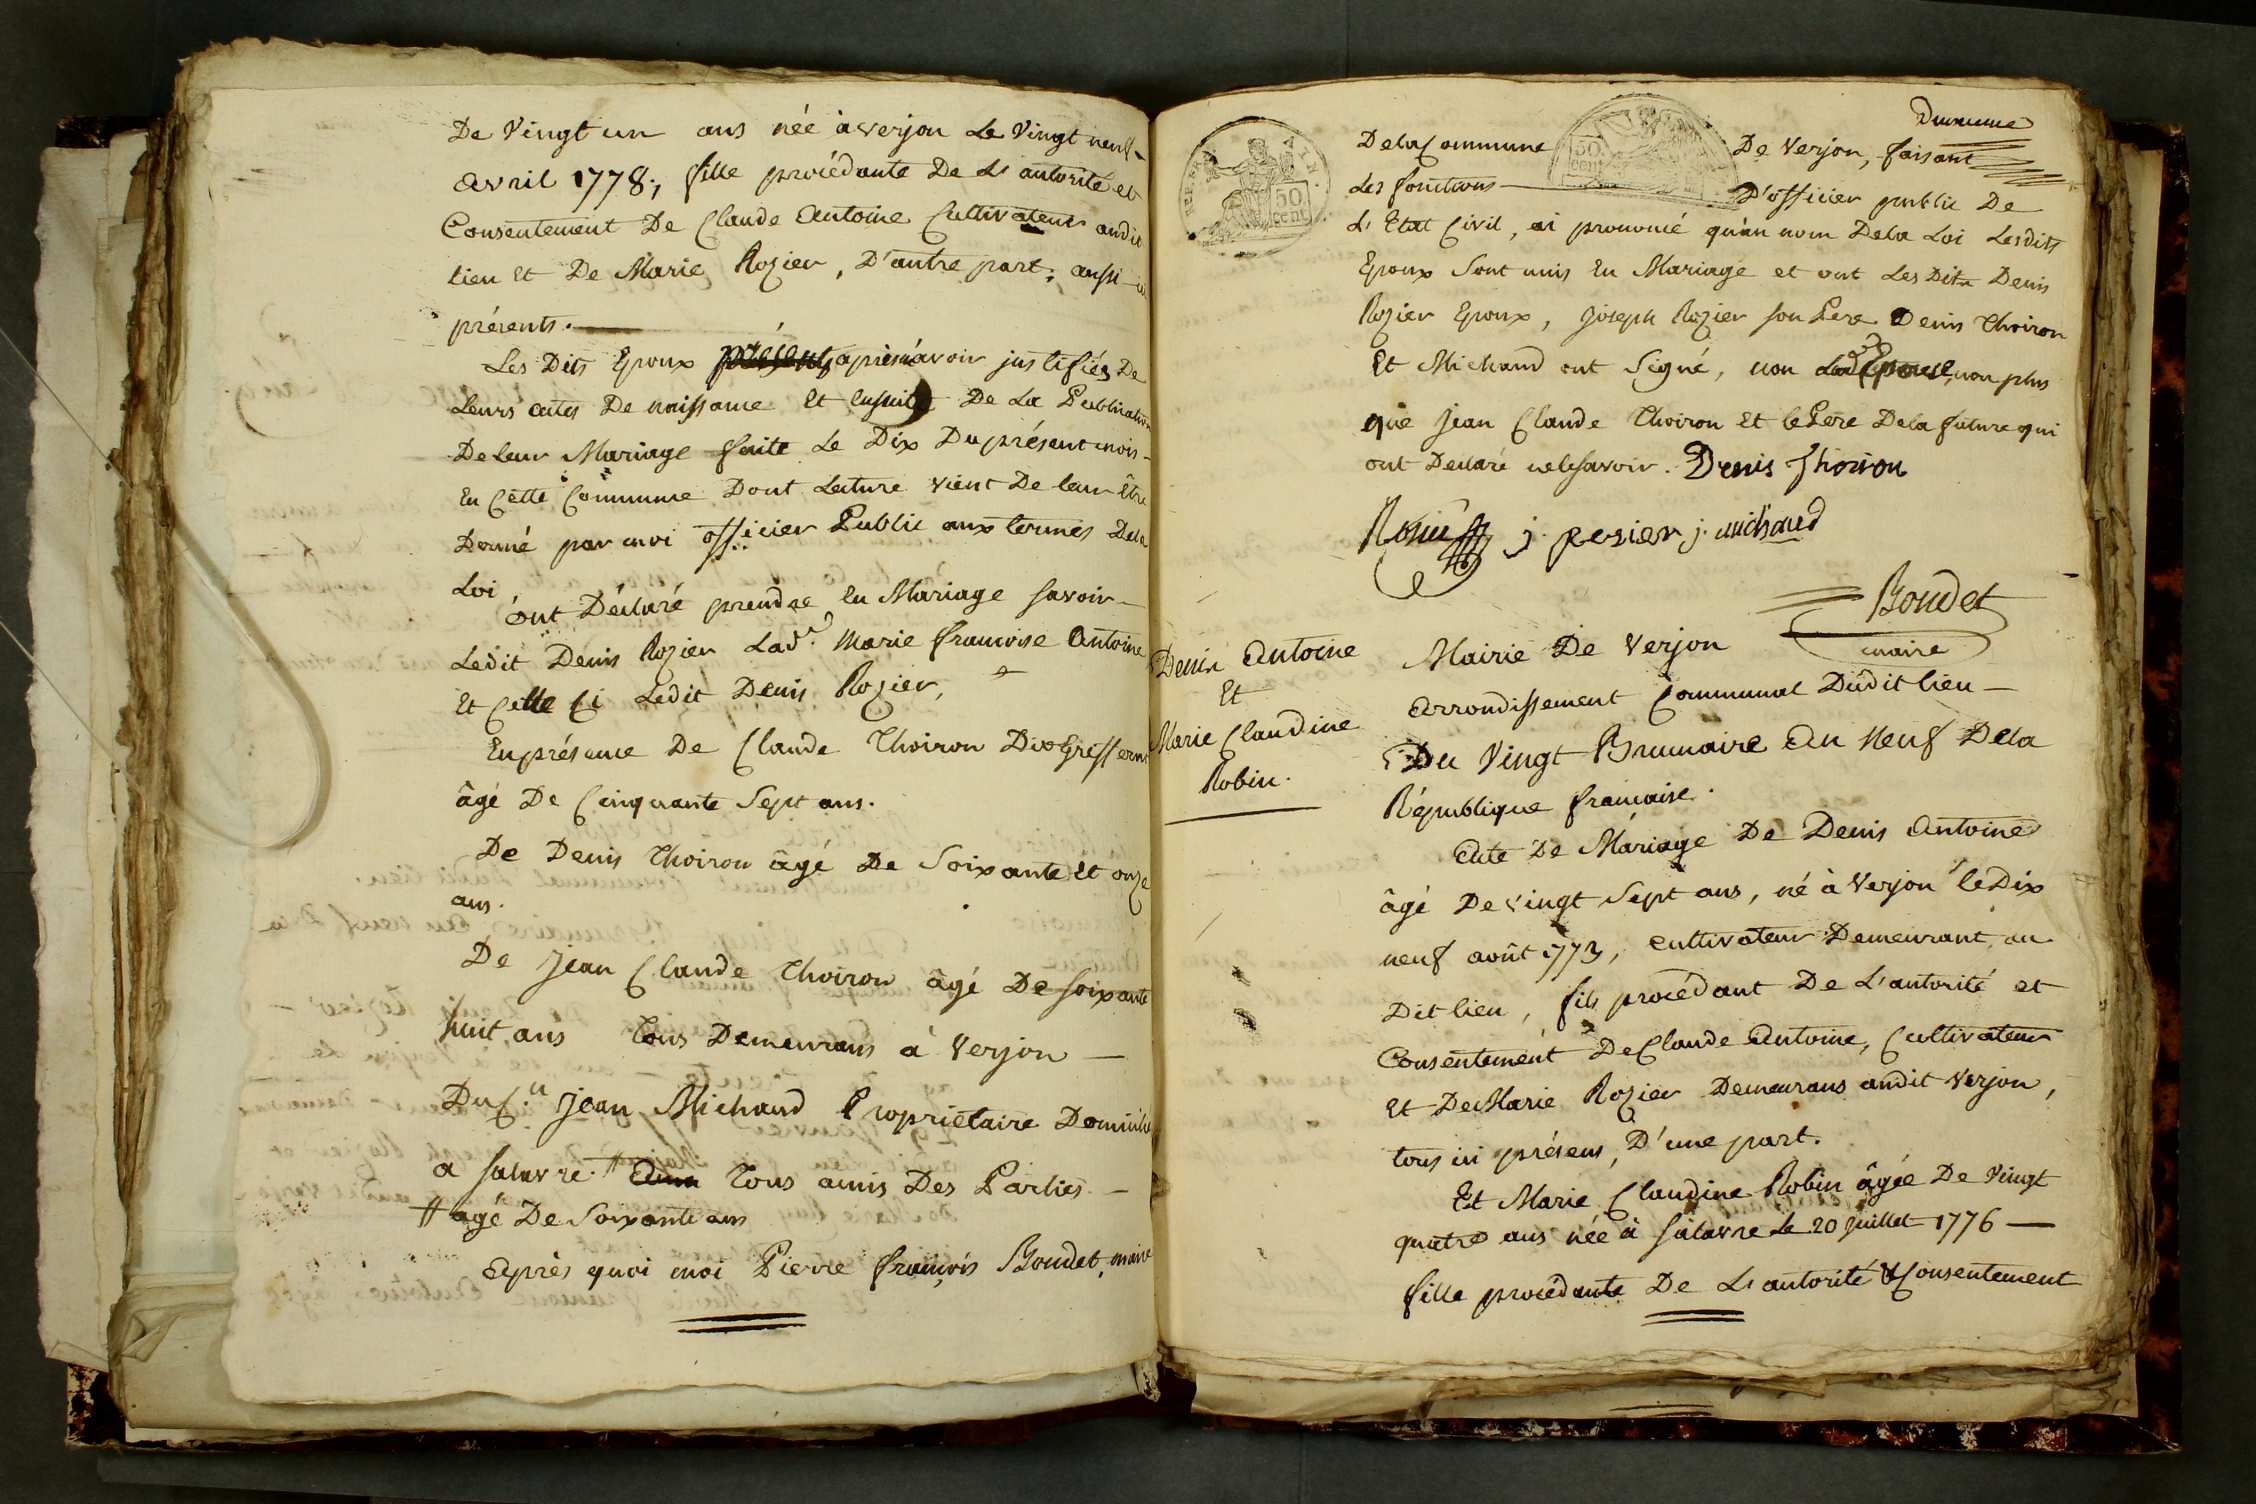 De Vingt un ans née à verjon Le Vingt neuf
avril 1778; fille procédante De L'autorité et
Consentement De Claude Antoine Cultivateur audit
lieu Et De Marie Rozier, D'autre part; aussi ici
présents.
Les Dits Epoux présents après avoir justifiés De
Leurs actes De naissance Et Ensuite De La Publication
De leur Mariage faite Le Dix Du présent mois
En Cette Commune Dont Lecture vient De leur être
Donné par moi officier Public aux termes Dela
Loi
ont Déclaré prendre En Mariage savoir
Ledit Denis Rozier Lade. Marie francoise Antoine
Et Celle Ci Ledit Denis Rozier,
En présence De Claude Thoiron
âgé De Cinquante Sept ans.
De Denis Thoiron âgé De Soixante Et onze
ans.
De Jean Claude Thoiron âgé De soixante
huit ans Tous Demeurans à Verjon
Du C.n Jean Michaud Propriétaire Domicilié
a salavre. # Tous amis Des Parties
# âgé De Soixante ans
Après quoi moi Pierre françois Boudet, maire
Dela Commune De Verjon, faisant
Les fonctions D'officier public De
L'Etat Civil, ai prononcé qu'au nom Dela Loi Lesdits
Epoux Sont unis En Mariage et ont Les Dits Denis
Rozier Epoux, Joseph Rozier son Pere Denis Thoiron
Et Michaud ont Signé, non Epouse, non plus
que Jean Claude Thoiron Et le Pere Dela future qui
ont Declaré ne le savoir. Denis Thoiron
Rosier j. resier j. michaud
Boudet
maire
50
cent
50
cent
Denis Antoine
Et
Marie Claudine
Robin.
Mairie De Verjon
Arrondissement Communal Dudit lieu
Du Vingt Brumaire An Neuf Dela
République francaise.
Acte De Mariage De Denis Antoine
âgé De vingt Sept ans, né à Verjon le Dix
neuf août 1773, cultivateur Demeurant au
Dit lieu, fils procédant De L'autorité et
Consentement De Claude Antoine, Cultivateur
Et De Marie Rozier Demeurans audit Verjon,
tous ici présens, D'une part.
Et Marie Claudine Robin âgée De Vingt
quatre ans née à salavre Le 20 Juillet 1776
fille procédante De L'autorité & Consentement